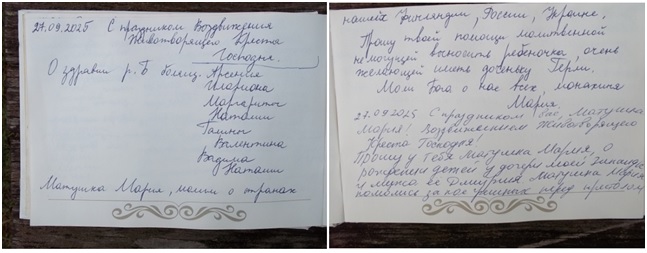 27.09.2025 С праздником Воздвижения
Животворящего Креста
Господня.
О здравии р. Б болящ. Арсения
Илариона
Маргариты
Наталии
Галины
Валентина
Вадима
Наталии
Матушка Мария, моли о странах
нашей Финляндии, России, Украине,
Прошу твоей помощи молитвенной
немогущей выносить ребёночка, очень
желающей иметь доченьку
Моли Бога о нас всех, монахиня
Мария
27.09.2025 С праздником Вас, Матушка
Мария! Воздвижением Животворящего
Креста Господня!
Прошу у тебя Матушка Мария, о
рождении детей у дочери моей Зинаиды
и мужа её Дмитрия Матушка Мария
помолись за нас грешных перед престолом